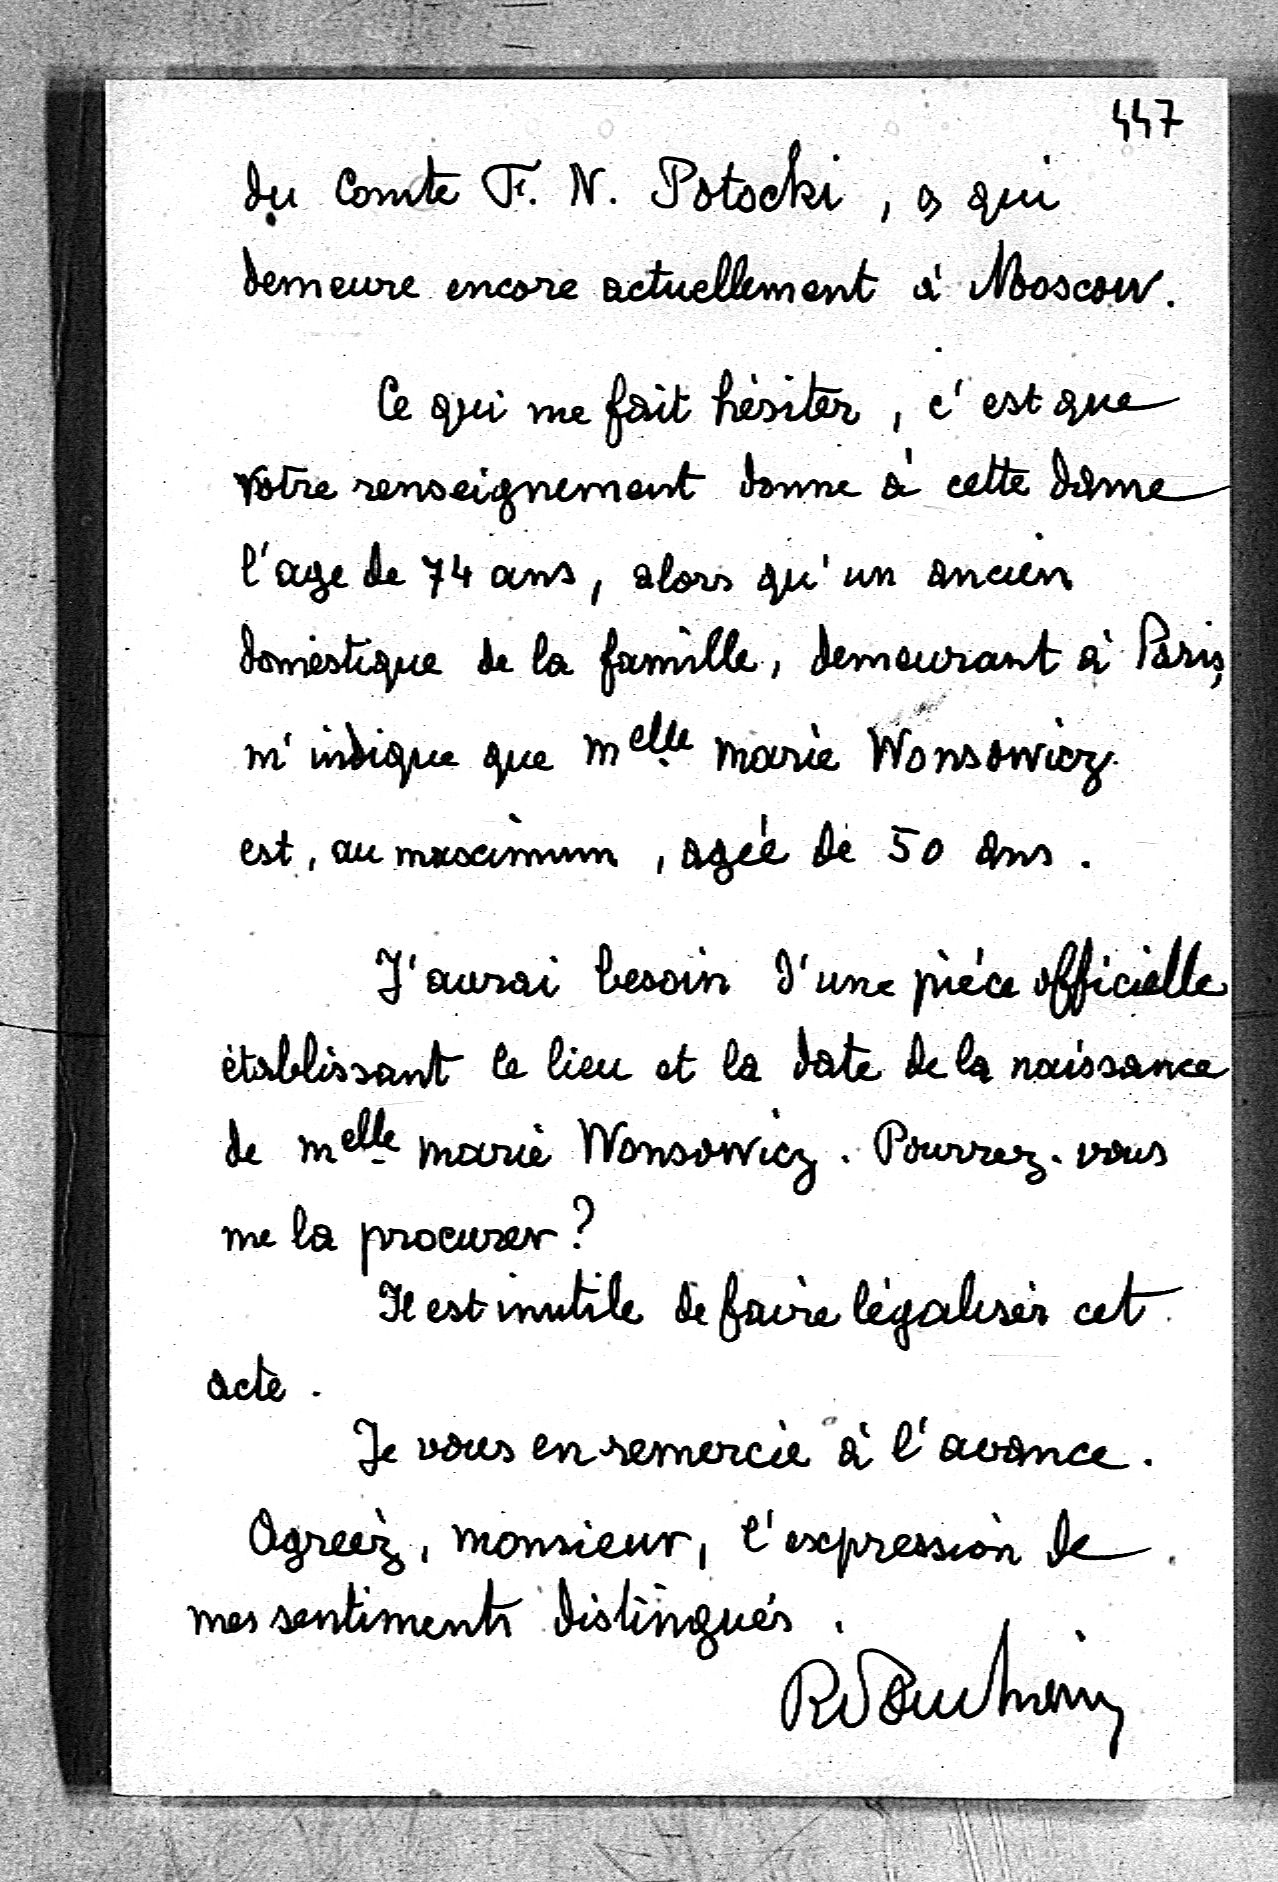 447
du Comte F. N. Potocki, & qui
demeure encore actuellement à Moscow.
Ce qui me fait hésiter, c'est que
votre renseignement donne à cette dame
l'age de 74 ans, alors qu'un ancien
domestique de la famille, demeurant à Paris,
m'indique que Melle Marie Wonsowicz
est, au maximum, agée de 50 ans.
J'aurai besoin d'une pièce officielle
établissant le lieu et la date de la naissance
de Melle Marie Wonsowicz. Pourrez-vous
me la procurer?
Il est inutile de faire légaliser cet
acte.
Je vous en remercie à l'avance.
Agréez, monsieur, l'expression de
mes sentiments distingués.